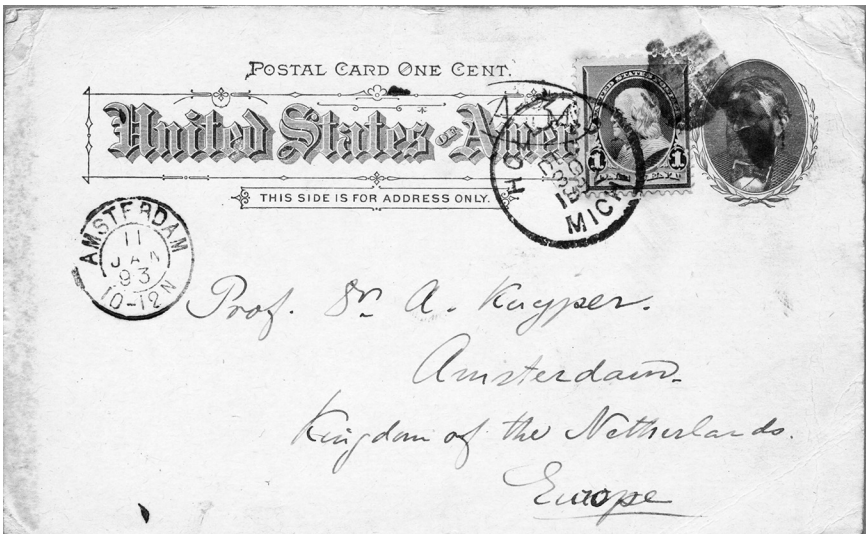 POSTAL CARD ONE CENT.
United States OF
THIS SIDE IS FOR ADDRESS ONLY.
UNITED STATES
1 1
MICH
AMSTERDAM
11
JAN
93
10-12N
Prof. Dr. A. Kuyper.
Amsterdam.
Kingdom of the Netherlands.
Europe